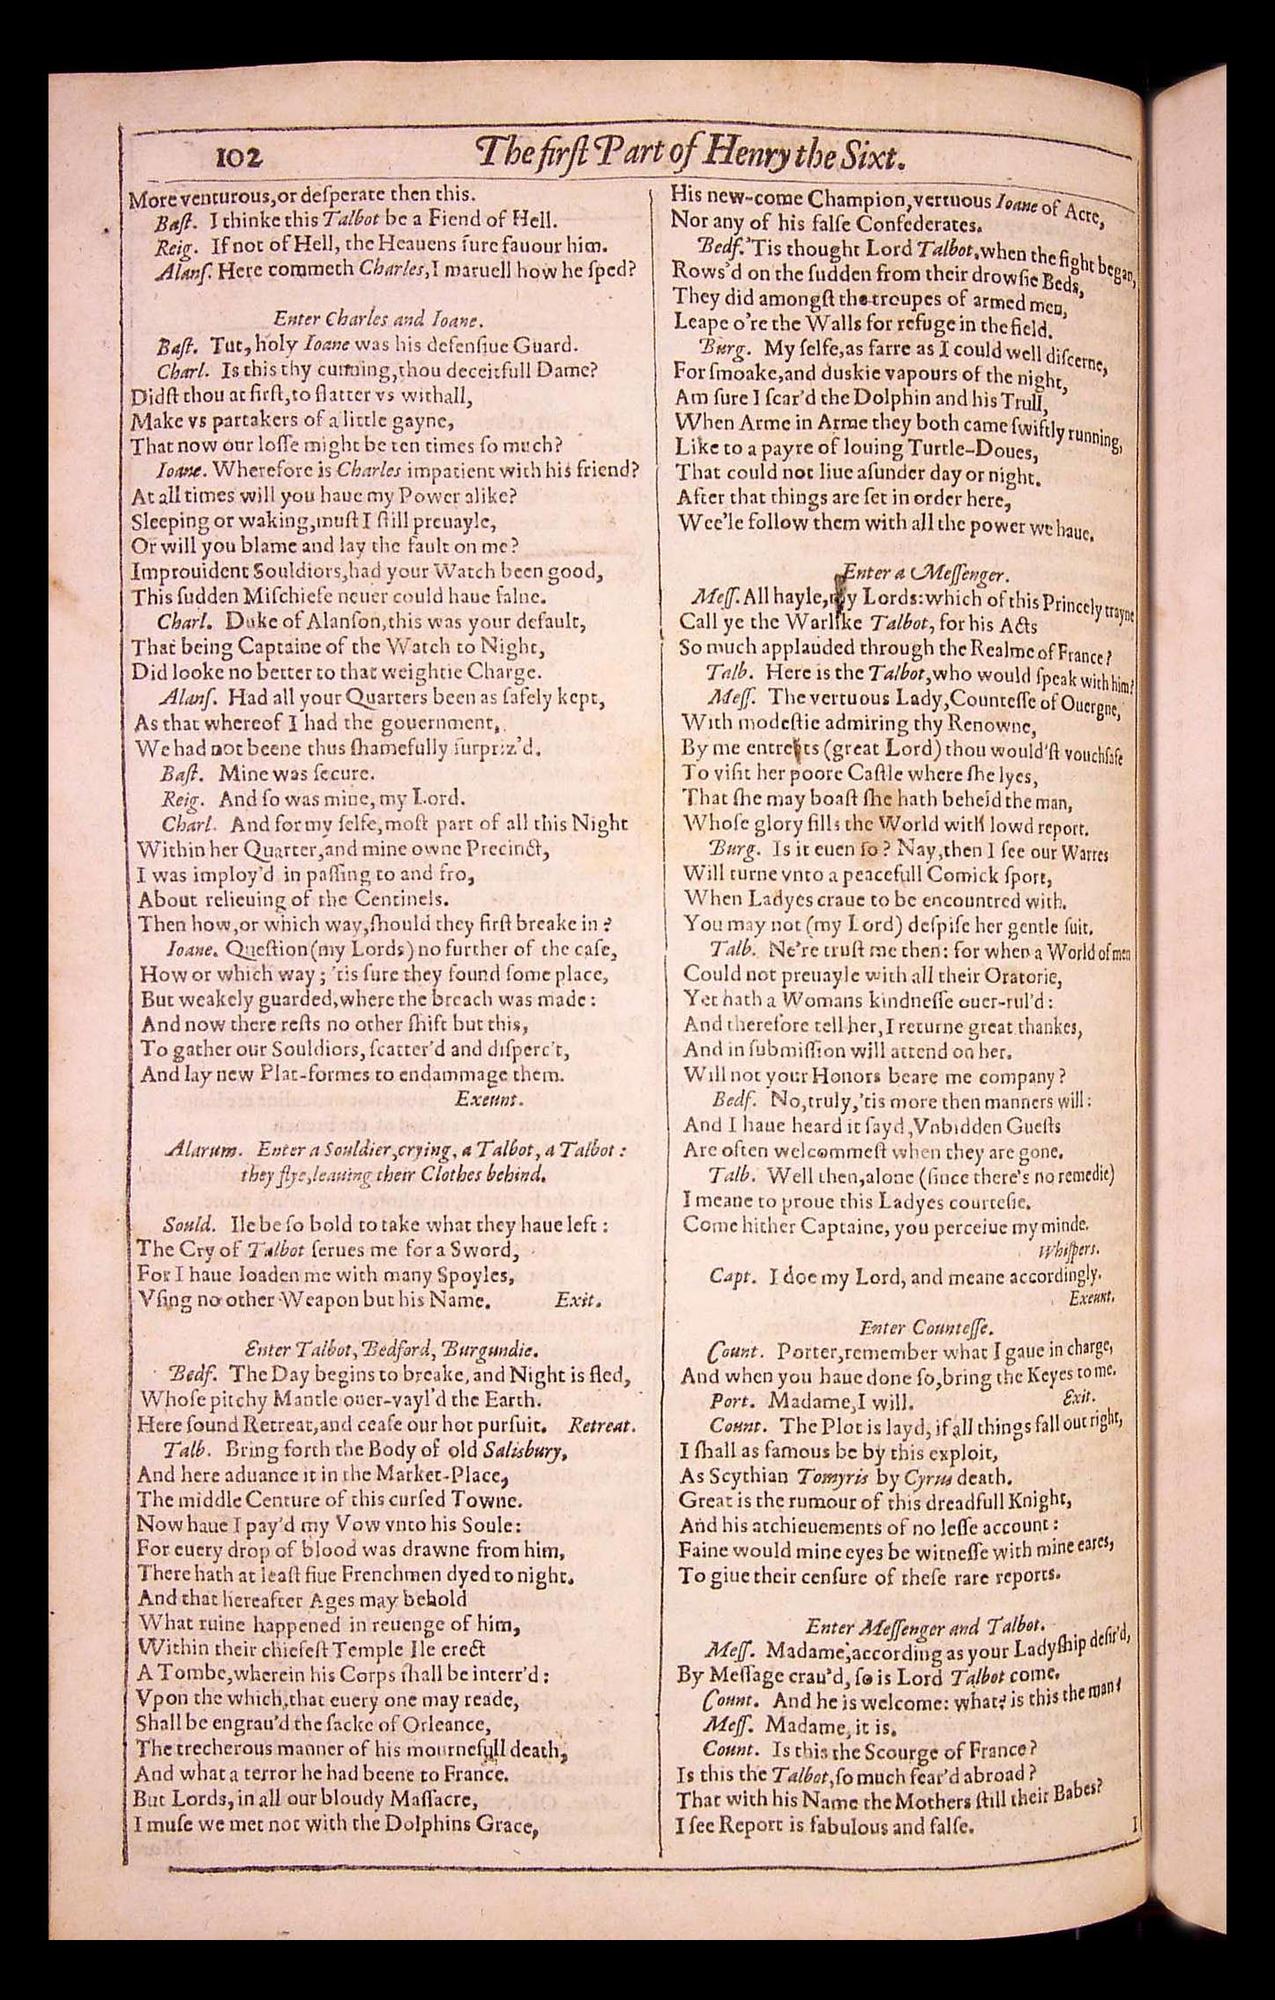 102
The first Part of Henry the Sixt.
More venturous, or desperate then this.
Bast. I thinke this Talbot be a Fiend of Hell.
Reig. If not of Hell, the Heauens sure fauour him.
Alans. Here commeth Charles, I maruell how he sped?
Enter Charles and Ioane.
Bast. Tut, holy Ioane was his defensiue Guard.
Charl. Is this thy cunning, thou deceitfull Dame?
Didst thou at first, to flatter vs withall,
Make vs partakers of a little gayne,
That now our losse might be ten times so much?
Ioane. Wherefore is Charles impatient with his friend?
At all times will you haue my Power alike?
Sleeping or waking, must I still preuayle,
Or will you blame and lay the fault on me?
Improuident Souldiors, had your Watch been good,
This sudden Mischiefe neuer could haue falne.
Charl. Duke of Alanson, this was your default,
That being Captaine of the Watch to Night,
Did looke no better to that weightie Charge.
Alans. Had all your Quarters been as safely kept,
As that whereof I had the gouernment,
We had not beene thus shamefully surpriz'd.
Bast. Mine was secure.
Reig. And so was mine, my Lord.
Charl. And for my selfe, most part of all this Night
Within her Quarter, and mine owne Precinct,
I was imploy'd in passing to and fro,
About relieuing of the Centinels.
Then how, or which way, should they first breake in?
Ioane. Question (my Lords) no further of the case,
How or which way; 'tis sure they found some place,
But weakely guarded, where the breach was made:
And now there rests no other shift but this,
To gather our Souldiors, scatter'd and disperc't,
And lay new Plat-formes to endammage them.
Exeunt.
Alarum. Enter a Souldier, crying, a Talbot, a Talbot:
they flye, leauing their Clothes behind.
Sould. Ile be so bold to take what they haue left:
The Cry of Talbot serues me for a Sword,
For I haue loaden me with many Spoyles,
Vsing no other Weapon but his Name. Exit.
Enter Talbot, Bedford, Burgundie.
Bedf. The Day begins to breake, and Night is fled,
Whose pitchy Mantle ouer-vayl'd the Earth.
Here sound Retreat, and cease our hot pursuit. Retreat.
Talb. Bring forth the Body of old Salisbury,
And here aduance it in the Market-Place,
The middle Centure of this cursed Towne.
Now haue I pay'd my Vow vnto his Soule:
For euery drop of blood was drawne from him,
There hath at least fiue Frenchmen dyed to night.
And that hereafter Ages may behold
What ruine happened in reuenge of him,
Within their chiefest Temple Ile erect
A Tombe, wherein his Corps shall be interr'd:
Vpon the which, that euery one may reade,
Shall be engrau'd the sacke of Orleance,
The trecherous manner of his mournefull death,
And what a terror he had beene to France.
But Lords, in all our bloudy Massacre,
I muse we met not with the Dolphins Grace,
His new-come Champion, vertuous Ioane of Acre,
Nor any of his false Confederates.
Bedf. 'Tis thought Lord Talbot, when the fight began,
Rows'd on the sudden from their drowsie Beds,
They did amongst the troupes of armed men,
Leape o're the Walls for refuge in the field.
Burg. My selfe, as farre as I could well discerne,
For smoake, and duskie vapours of the night,
Am sure I scar'd the Dolphin and his Trull,
When Arme in Arme they both came swiftly running,
Like to a payre of louing Turtle-Doues,
That could not liue asunder day or night.
After that things are set in order here,
Wee'le follow them with all the power we haue.
Enter a Messenger.
Mess. All hayle, my Lords: which of this Princely trayne
Call ye the Warlike Talbot, for his Acts
So much applauded through the Realme of France?
Talb. Here is the Talbot, who would speak with him?
Mess. The vertuous Lady, Countesse of Ouergne,
With modestie admiring thy Renowne,
By me entreats (great Lord) thou would'st vouchsafe
To visit her poore Castle where she lyes,
That she may boast she hath beheld the man,
Whose glory fills the World with lowd report.
Burg. Is it euen so? Nay, then I see our Warres
Will turne vnto a peacefull Comick sport,
When Ladyes craue to be encountred with.
You may not (my Lord) despise her gentle suit.
Talb. Ne're trust me then: for when a World of men
Could not preuayle with all their Oratorie,
Yet hath a Womans kindnesse ouer-rul'd:
And therefore tell her, I returne great thankes,
And in submission will attend on her.
Will not your Honors beare me company?
Bedf. No, truly, 'tis more then manners will:
And I haue heard it sayd, Vnbidden Guests
Are often welcommest when they are gone.
Talb. Well then, alone (since there's no remedie)
I meane to proue this Ladyes courtesie.
Come hither Captaine, you perceiue my minde.
Whispers.
Capt. I doe my Lord, and meane accordingly.
Exeunt.
Enter Countesse.
Count. Porter, remember what I gaue in charge,
And when you haue done so, bring the Keyes to me.
Port. Madame, I will. Exit.
Count. The Plot is layd, if all things fall out right,
I shall as famous be by this exploit,
As Scythian Tomyris by Cyrus death.
Great is the rumour of this dreadfull Knight,
And his atchieuements of no lesse account:
Faine would mine eyes be witnesse with mine eares,
To giue their censure of these rare reports.
Enter Messenger and Talbot.
Mess. Madame, according as your Ladyship desir'd,
By Message crau'd, so is Lord Talbot come.
Count. And he is welcome: what? is this the man?
Mess. Madame, it is.
Count. Is this the Scourge of France?
Is this the Talbot, so much fear'd abroad?
That with his Name the Mothers still their Babes?
I see Report is fabulous and false.
I